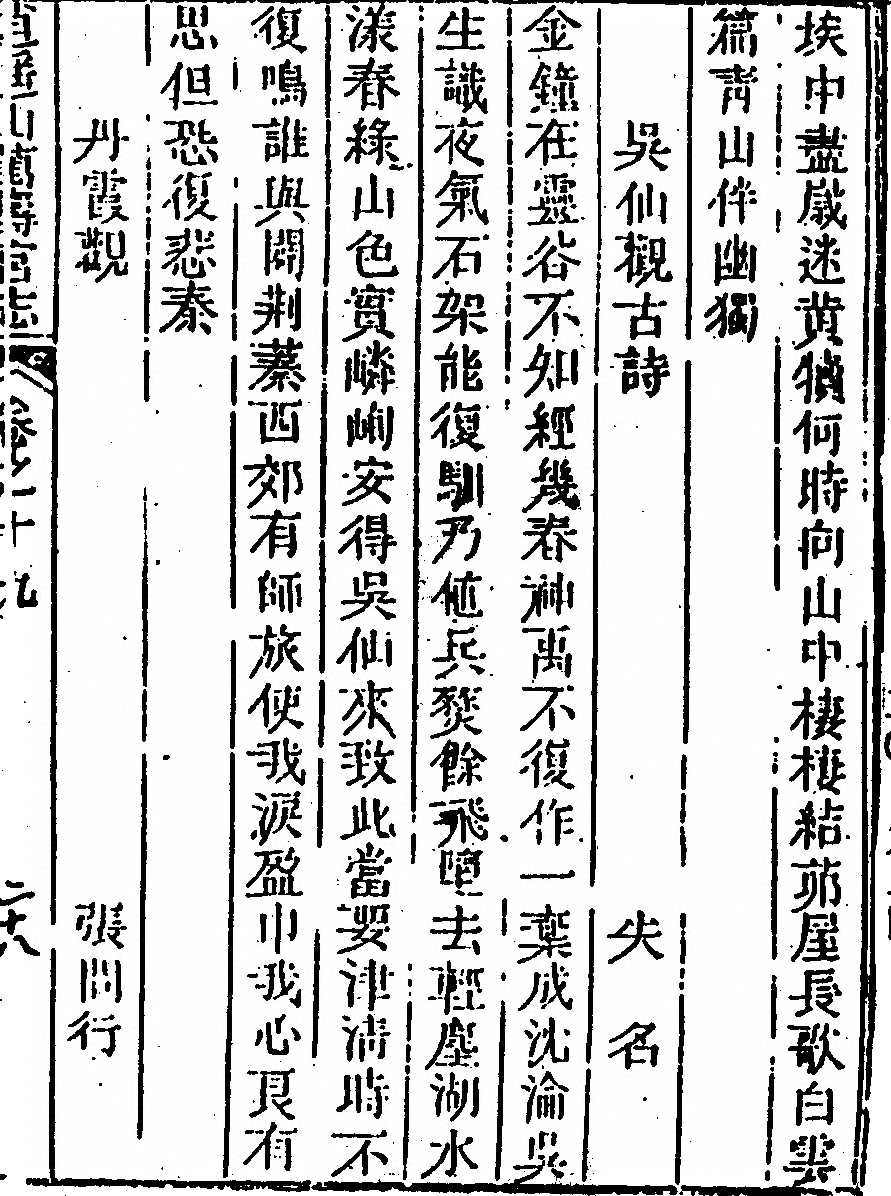 埃中盡歲迷黄犢何時向山中棲棲結茆屋長歌白雲
篇青山伴幽獨
吳仙觀古詩　失名
金鐘在靈谷不知經幾春神禹不復作一棄成沈淪吳
生識夜氣石架能復馴乃值兵燹餘飛墮去輕塵湖水
漾春綠山色實嶙峋安得吳仙來致此當要津清時不
復鳴誰與闢荆蓁西郊有師旅使我淚盈巾我心良有
思但恐復悲秦
丹霞觀　張問行
逍遥山萬壽宫志　卷十九　二十八